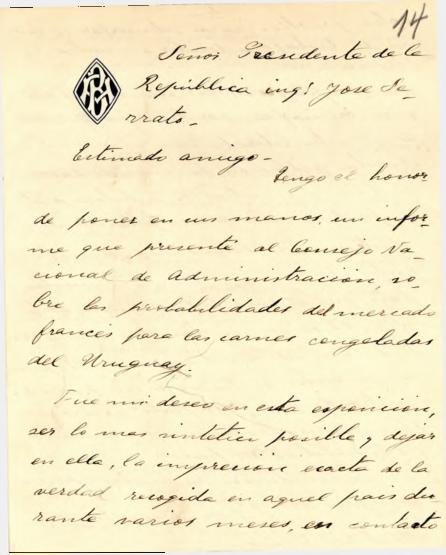 14
Señor Presidente de la
República ing! Jose Se-
rrato-
Estimado amigo-
Tengo el honor
de poner en sus manos, un infor-
me que presente al Consejo Na-
cional de Administración, so-
bre las probabilidades del mercado
francés para las carnes congeladas
del Uruguay.
Fue mi deseo en esta esposición,
ser lo mas sintetico posible y dejar
en ella, la impreción exacta de la
verdad recogida en aquel pais du-
rante varios meses, en contacto